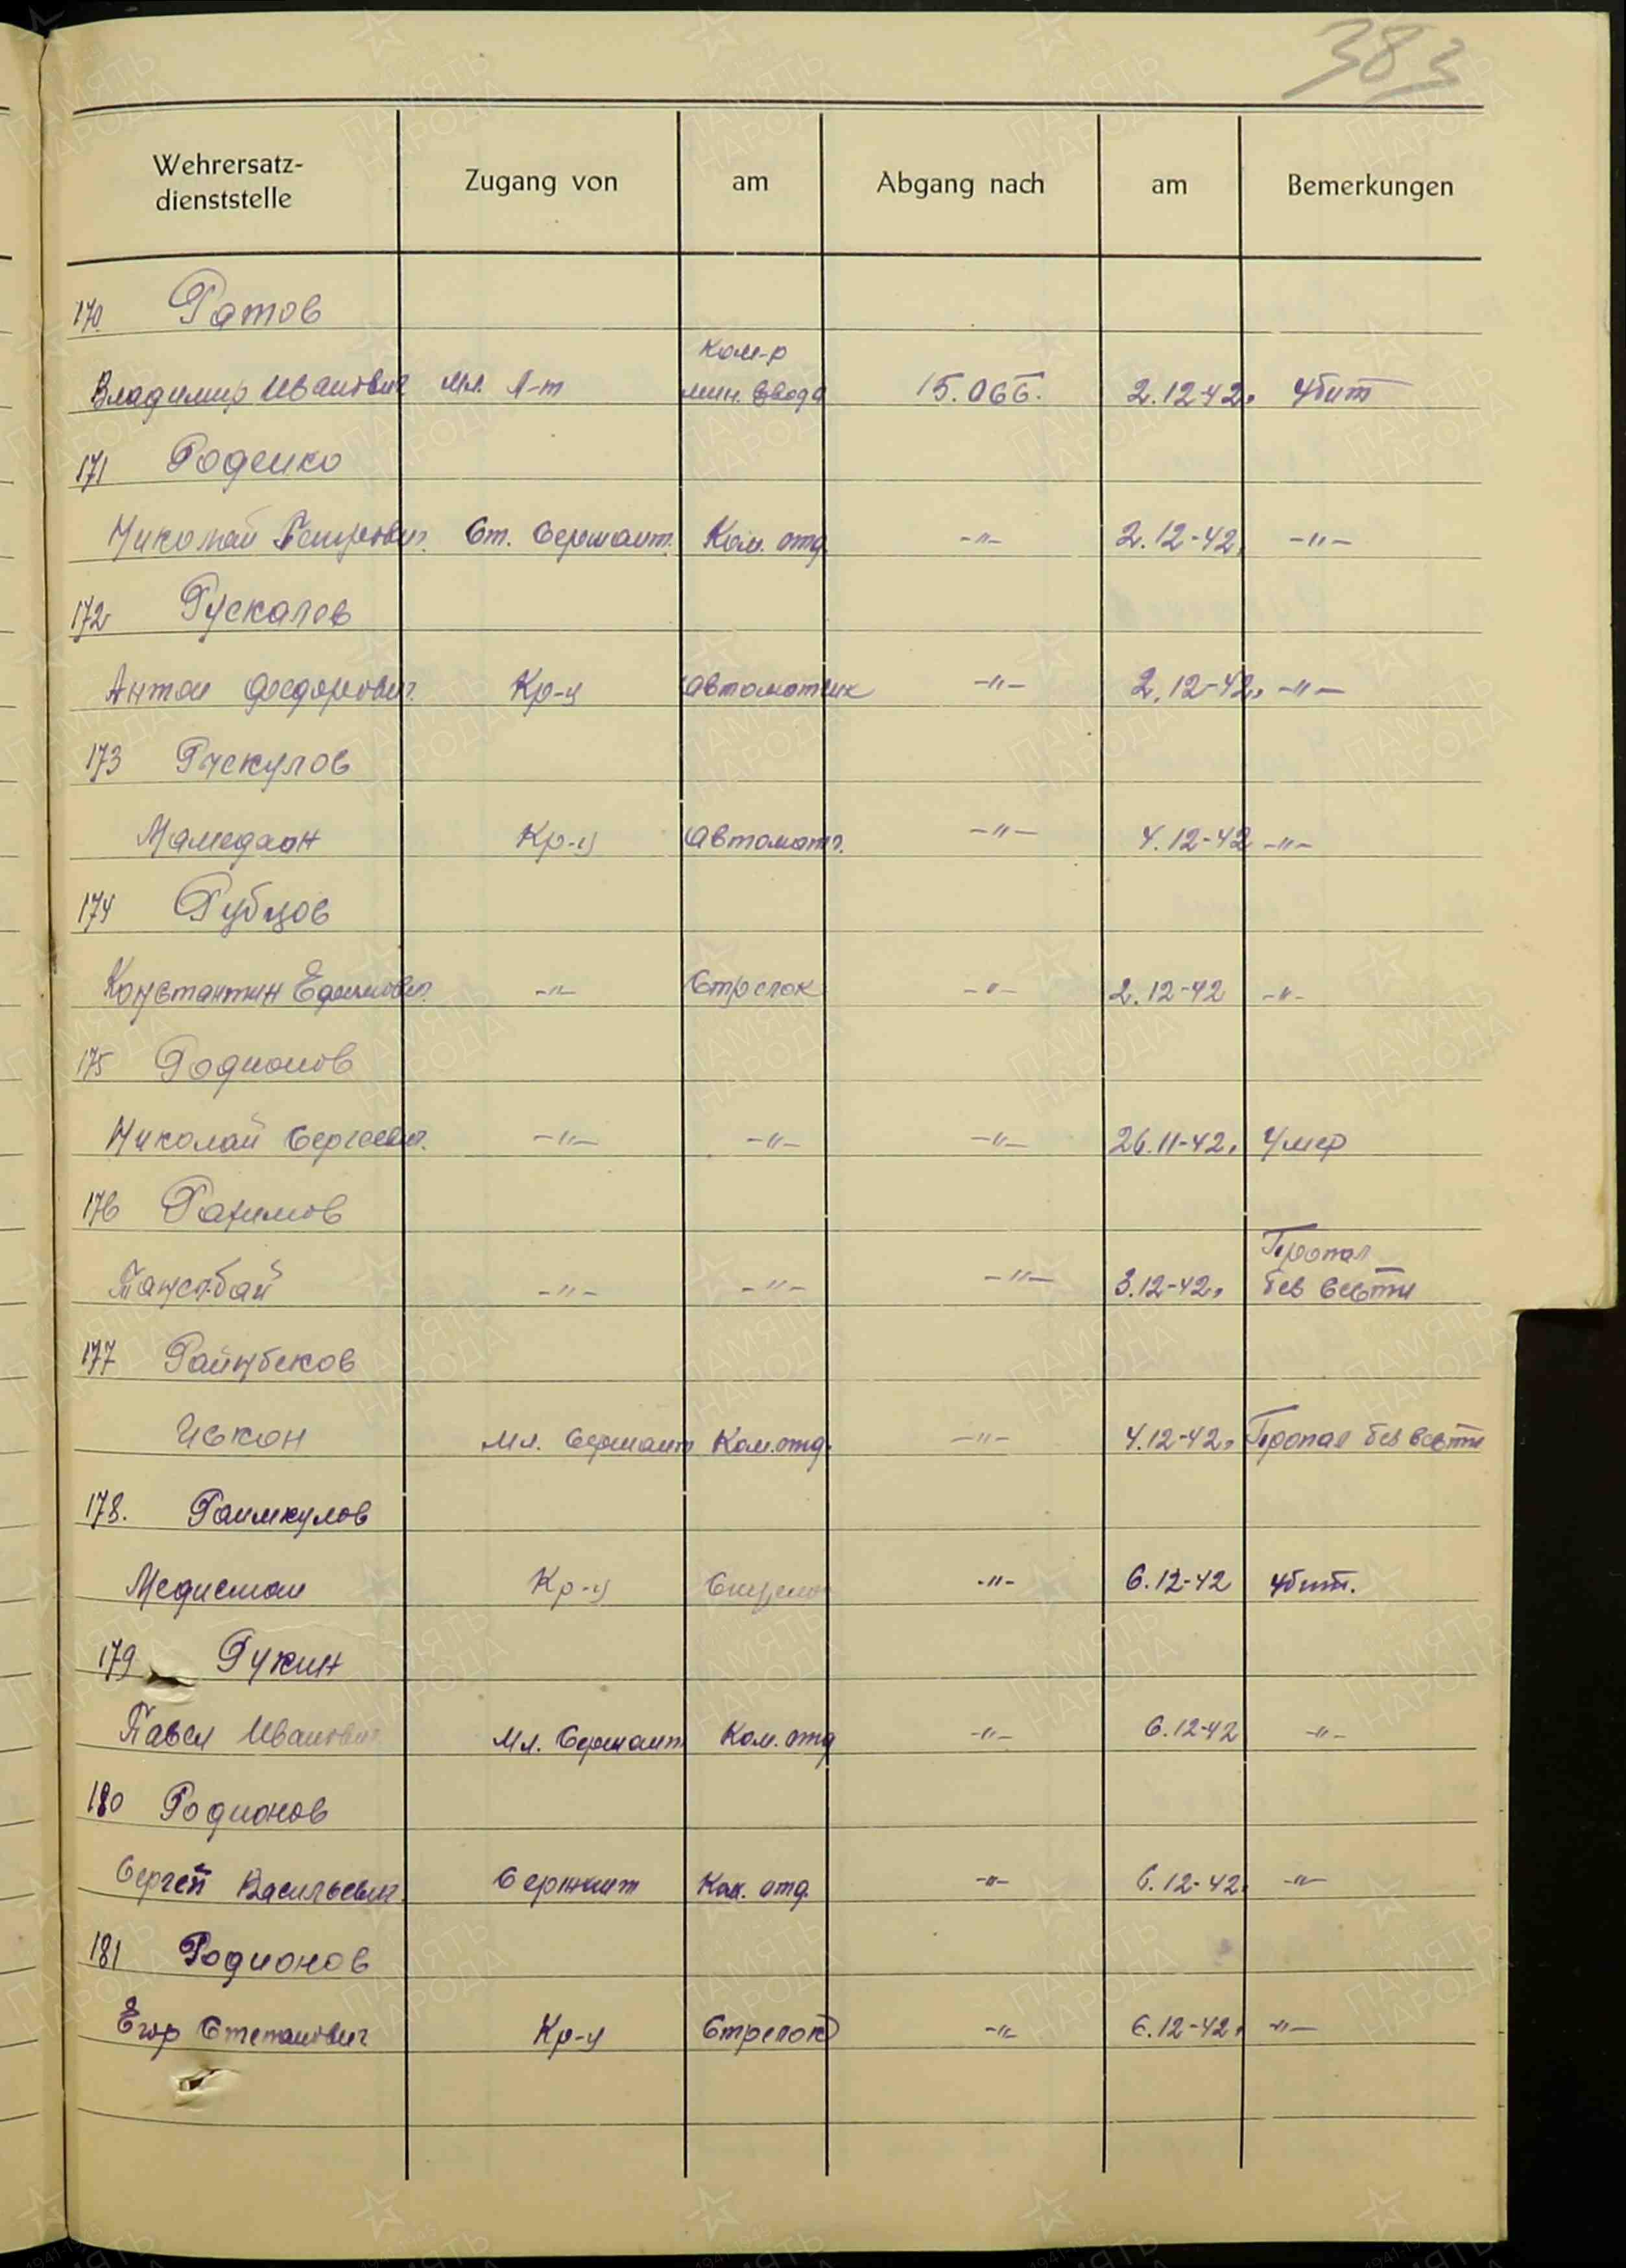 383
Wehrersatz-
dienststelle
Zugang von
am
Abgang nach
am
Bemerkungen
170 Ратов
Ком-р
Владимир Иванович Мл. Л-т мин. взвода 15.О6б. 2.12-42. Убит
171 Роденко
Николай Петрович. Ст. Сержант. Ком. отд -"- 2.12-42. -"-
172 Рускалев
Антон Федорович. Кр-ц Автоматчик -"- 2.12-42. -"-
173 Рускулов
Мамедхан Кр-ц Автоматч. -"- 4.12-42 -"-
174 Рубцов
Константин Ефимович. -"- Стрелок -"- 2.12-42 -"-
175 Родионов
Николай Сергеевич. -"- -"- -"- 26.11-42. Умер
176 Рахимов
Пропал
-"- -"- -"- 3.12-42. без вести
177 Райнбеков
Искан Мл. Сержант Ком.отд. -"- 4.12-42. Пропал без вести
178. Раимкулов
Медисман Кр-ц Стрелок -"- 6.12-42 Убит.
179 Рукин
Павел Иванович Мл. Сержант Ком. отд -"- 6.12-42 -"-
180 Родионов
Сергей Васильевич. Сержант Ком. отд. -"- 6.12-42. -"-
181 Родионов
Егор Степанович Кр-ц Стрелок -"- 6.12-42. -"-
ПАМЯТЬ
НАРОДА